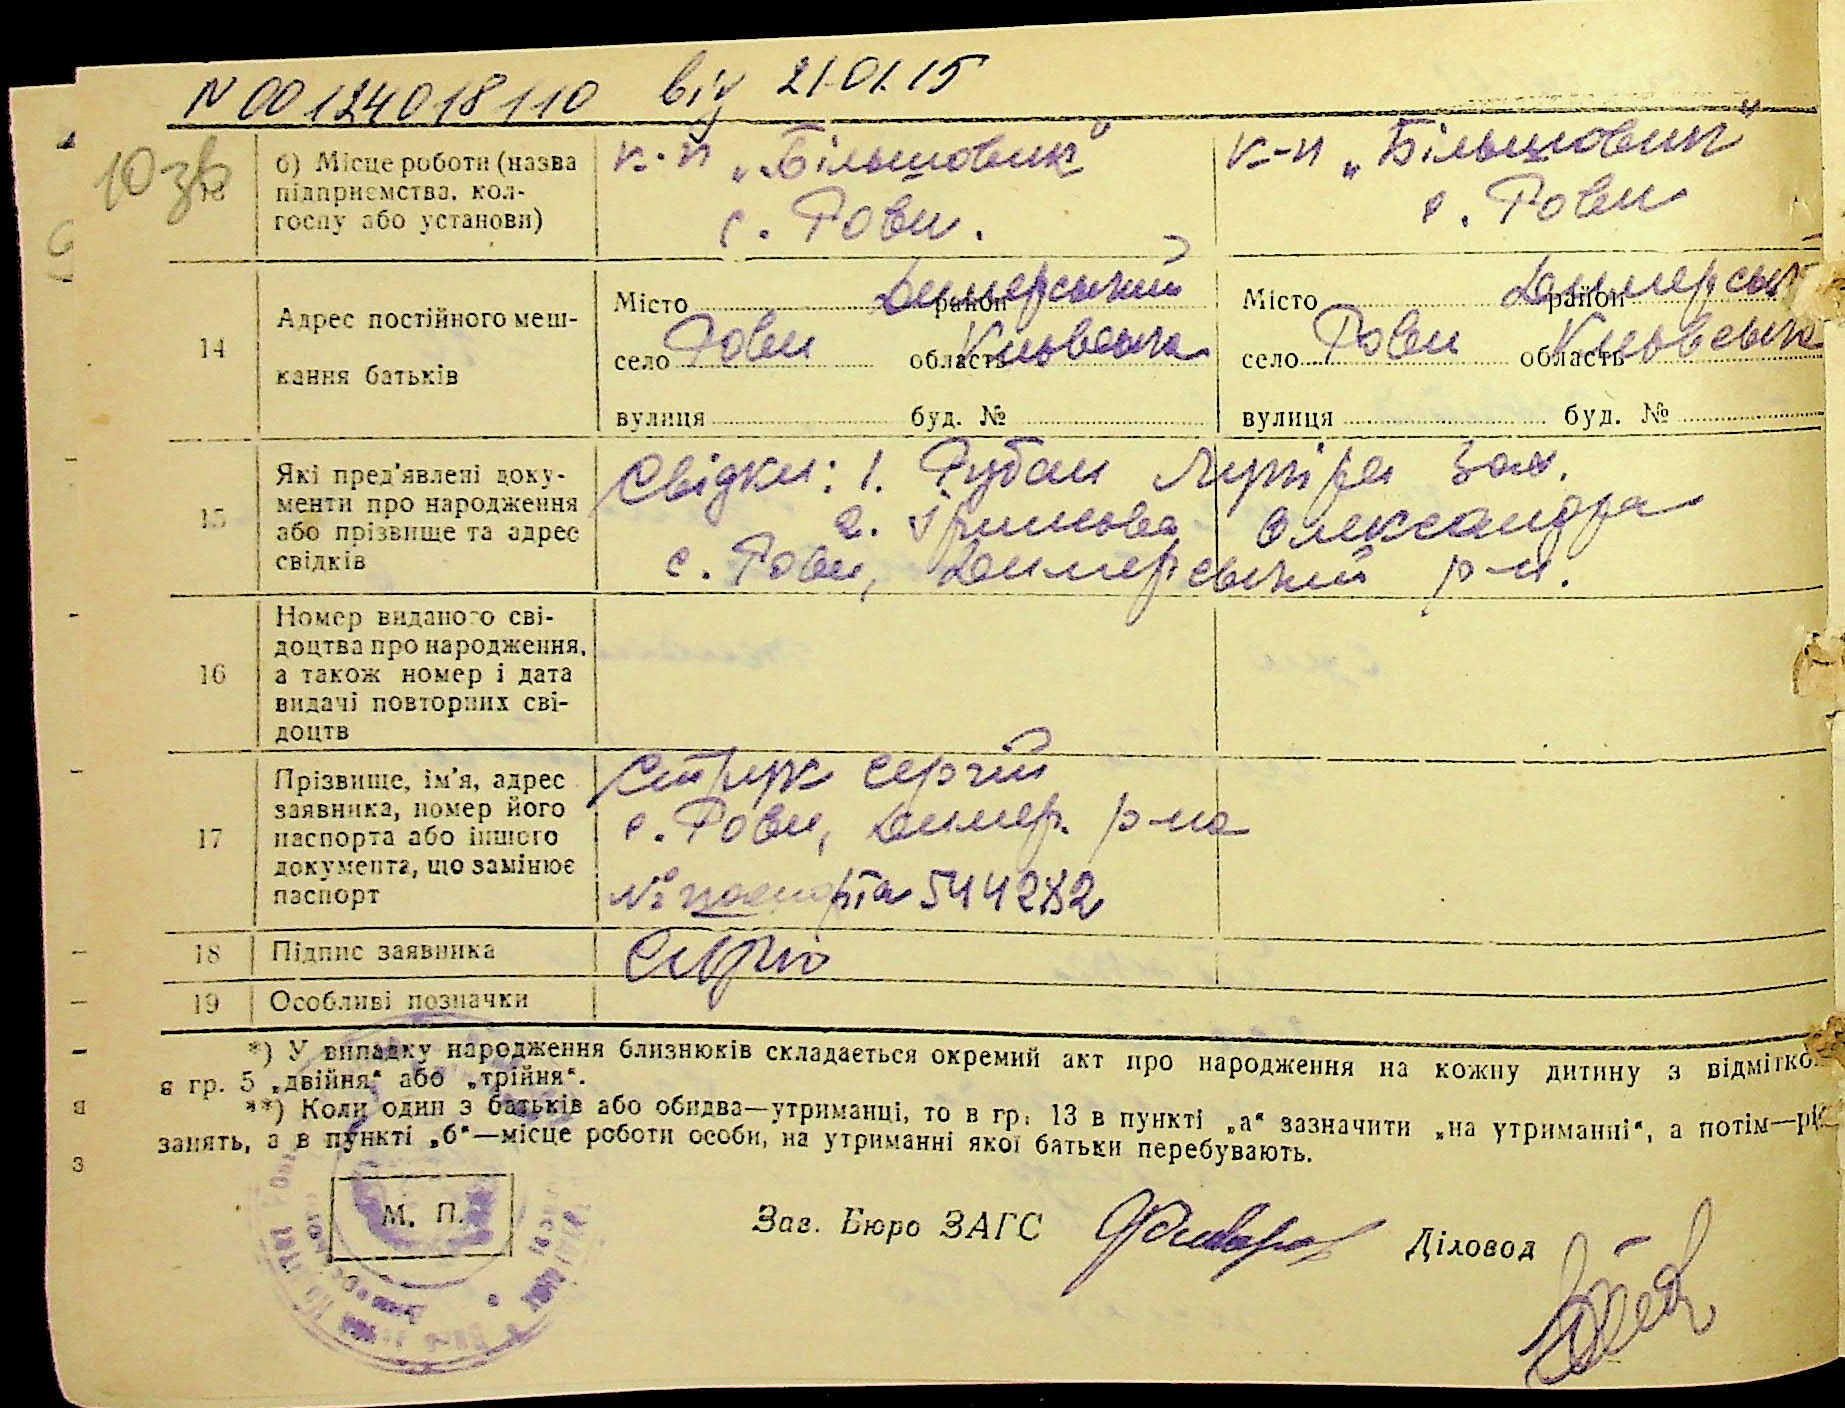 N 00124018110 від 21.01.15
10 зв
б) Місце роботи (назва підприємства, кол-госпу або установи)
к-п „Більшовик"
с. Рови.
к-п „Більшовик"
с. Рови
14
Адрес постійного меш-
кання батьків
Місто Димерський район
село Рови область Київська
вулиця буд. №
Місто Димерськ район
село Рови область Київська
вулиця буд. №
15
Які пред'явлені доку-
менти про народження
або прізвище та адрес
свідків
Свідки: 1. Рубан Зах.
2. Олександра
с. Рови, Димерський р-н.
16
Номер виданого сві-
доцтва про народження,
а також номер і дата
видачі повторних сві-
доцтв
17
Прізвище, ім'я, адрес
заявника, номер його
паспорта або іншого
документа, що замінює
паспорт
Струк Сергій
с. Рови, Димер. р-на
№ паспорта 544282
18
Підпис заявника
19
Особливі позначки
*) У випадку народження близнюків складається окремий акт про народження на кожну дитину з відмітко
в гр. 5 „двійня" або „трійня".
**) Коли один з батьків або обидва—утриманці, то в гр. 13 в пункті „а" зазначити „на утриманні", а потім—рі
занять, а в пункті „б"—місце роботи особи, на утриманні якої батьки перебувають.
М. П.
Зав. Бюро ЗАГС
Діловод